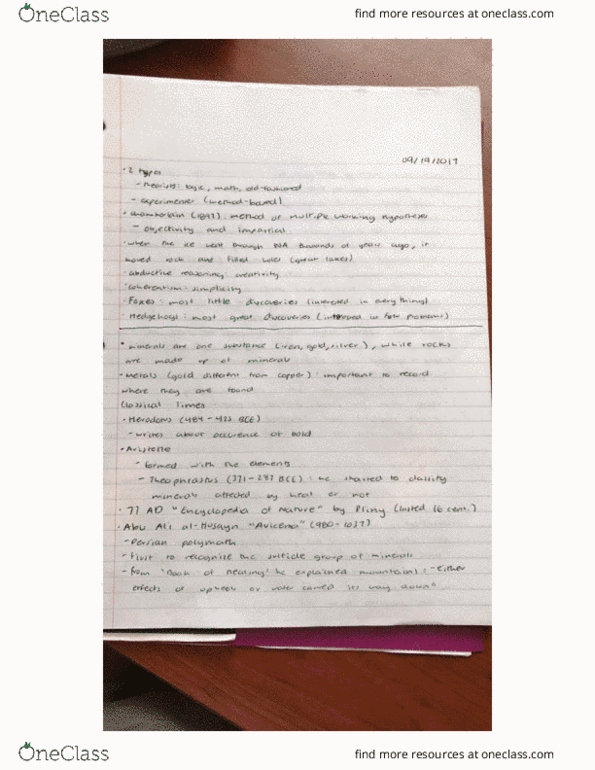 OneClass
find more resources at oneclass.com
09/19/2017
• 2 types
- theorists: logic, math, old-fashioned
- experimenter (method-based)
• Chamberlain (1897): method of multiple working hypotheses
- objectivity and impartial
• when the ice went through NA thousands of years ago, it
moved rock and filled holes (great lakes)
• abductive reasoning: creativity
• coherentism: simplicity
• Foxes: most little discoveries (interested in everything)
• Hedgehogs: most great discoveries (interested in few problems)
• minerals are one substance (iron, gold, silver), while rocks
are made up of minerals
• metals (gold different from copper): important to record
where they are found
Classical Times
• Herodotus (484-425 BCE)
- writes about occurence of gold
• Aristotle
- formed with the elements
- Theophrastus (371-287 BCE): he started to classify
minerals affected by heat or not
• 77 AD "Encyclopedia of Nature" by Pliny (lasted 16 cent.)
• Abu Ali al-Husayn "Avicena" (980-1037)
- Persian polymath
- First to recognise the sulfide group of minerals
- from "Book of Healing" he explained mountains: "Either
effects of upheav or water carved its way down"
OneClass
find more resources at oneclass.com